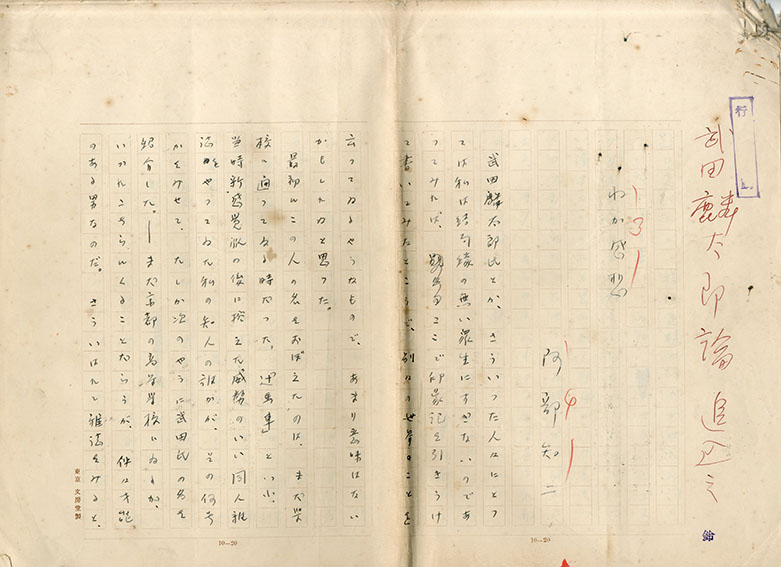 武田麟太郎論 追込ミ
行
鈴
131
わが感想
141
阿部知二
武田麟太郎氏とか、さういつた人々にとつ
ては私は結局縁の無い衆生にすぎないのであ
つてみれば、ここで印象記を引きうけ
て書いてみたところで、別々の世界のことを
云つてゐるやうなもので、あまり意味はない
かもしれぬと思つた。
最初にこの人の名をおぼえたのは、まだ学
校に通つてゐる時だつた。「辻馬車」といふ、
当時新感覚派の後に控えた威勢のいい同人雑
誌をやつてゐた私の知人の誰かが、その何号
かをみせて、たしか次のやうに武田氏の名を
紹介した。――まだ京都の高等学校にゐるが、
いづれこちらにくることだらうが、仲々才能
のある男なのだ。さういはれて雑誌をみると、
10—20
10—20
東京 文房堂製